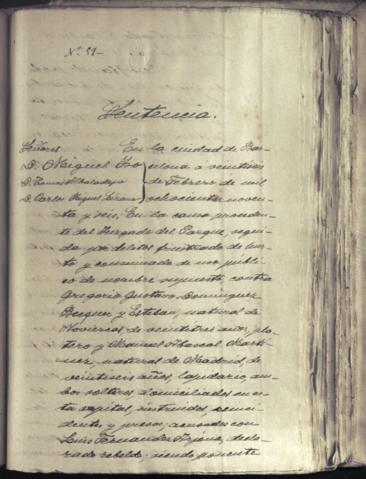 Nº 51-
Sentencia.
Señores En la ciudad de Bar-
D. Miguel celona á veintiseis
D. de Febrero de mil
D. Carlos ochocientos noven-
ta y seis; En la causa proceden-
te del Juzgado del Parque, segui-
da por delitos frustrado de hur-
to y consumado de uso públi-
co de nombre supuesto, contra
Gregorio Gustavo Dominguez
Becquer y Esteban, natural de
Noviercas, de veintitres años, pla-
tero y Manuel Abascal Martí-
nez, natural de Madrid, de
veintiseis años, lapidario, am-
bos solteros, domiciliados en es-
ta capital, instruidos,
dentes y presos, acusados con
Luis Fernandez decla-
rado rebelde: siendo ponente